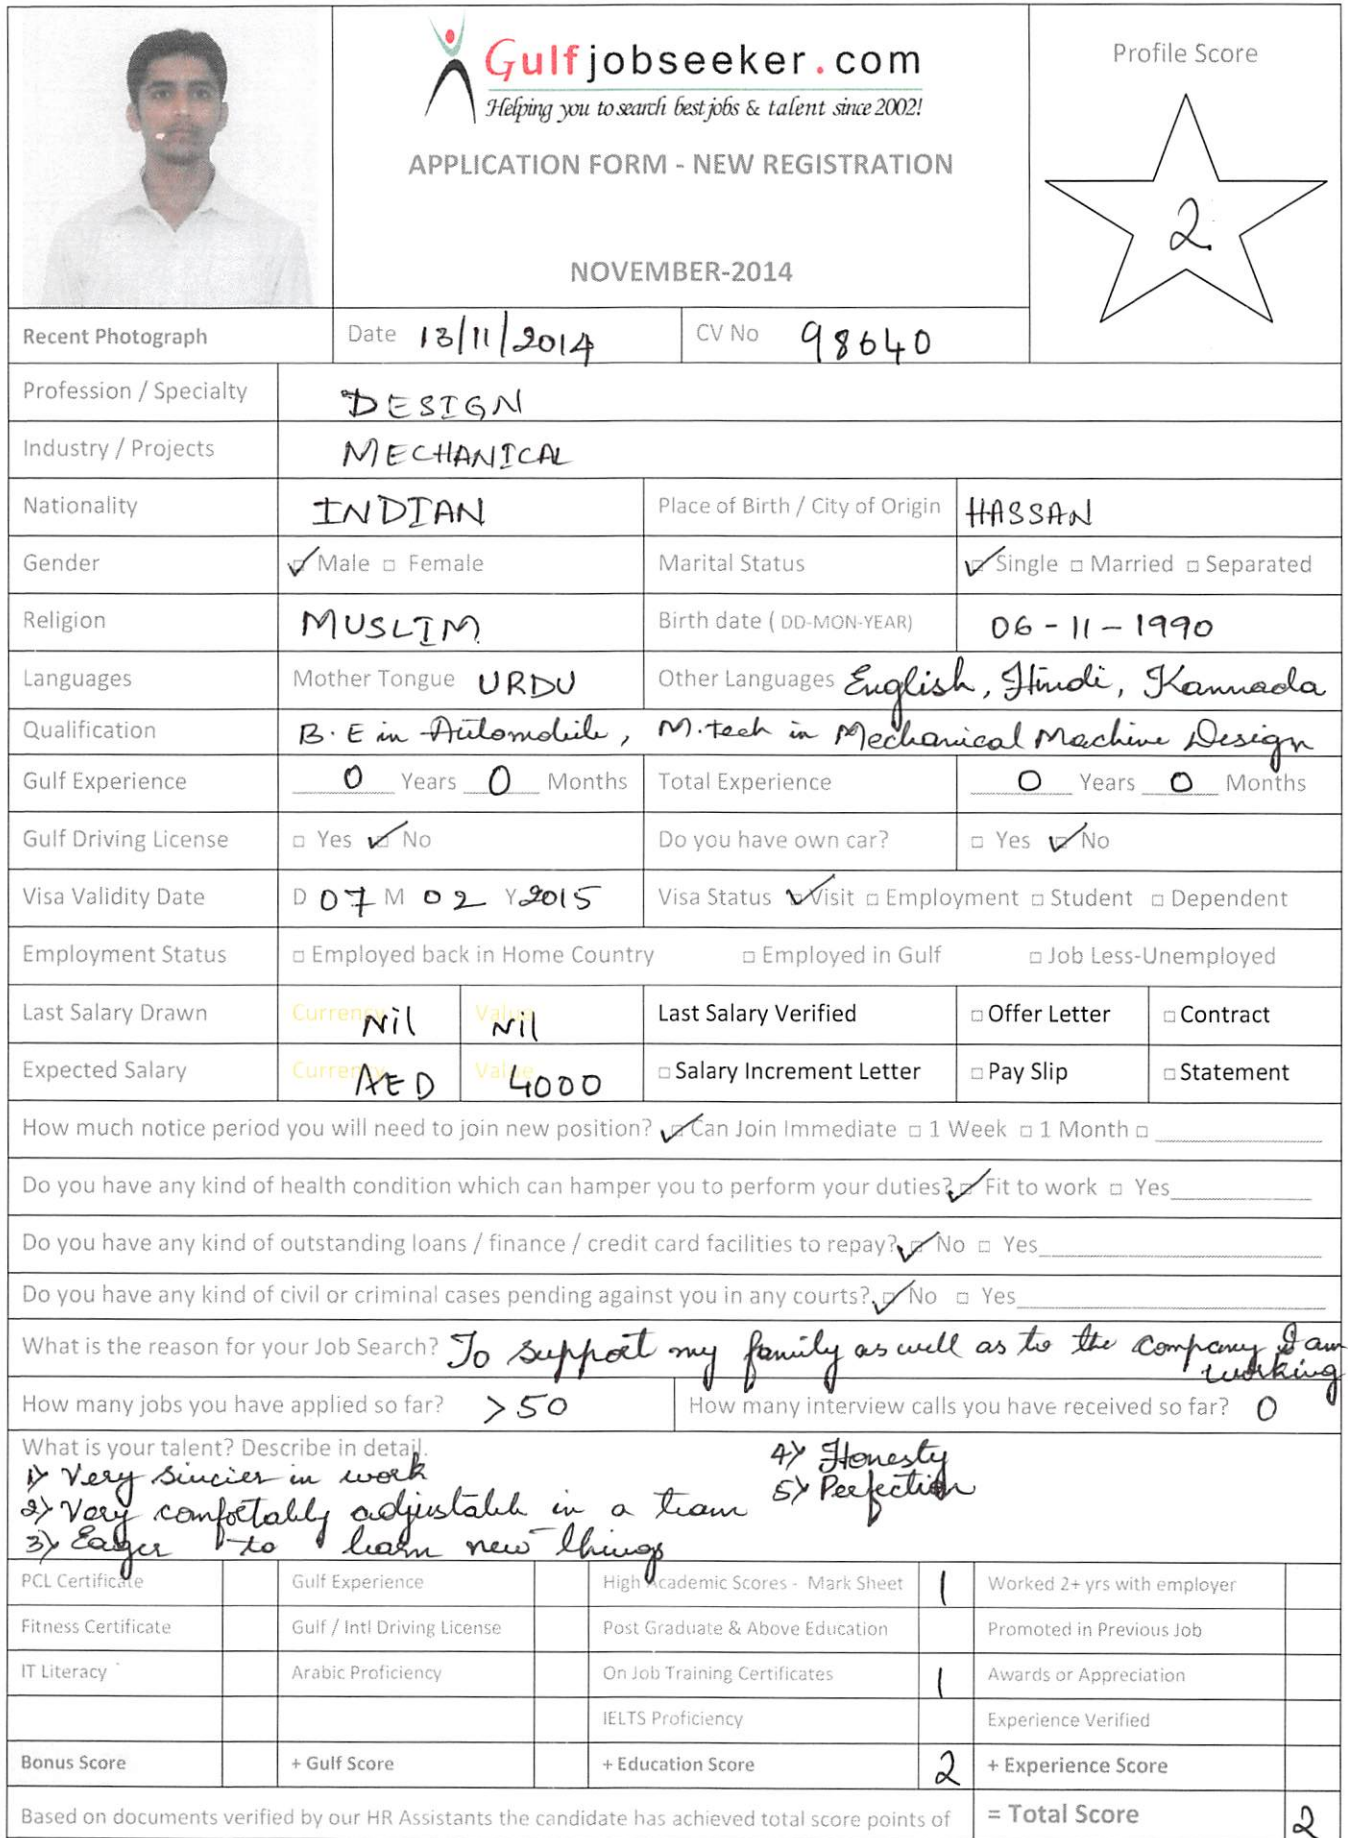 Gulfjobseeker.com
Helping you to search best jobs & talent since 2002!
APPLICATION FORM - NEW REGISTRATION
NOVEMBER-2014
Profile Score
2
Recent Photograph
Date 13/11/2014
CV No 98640
Profession / Specialty DESIGN
Industry / Projects MECHANICAL
Nationality INDIAN Place of Birth / City of Origin HASSAN
Gender ☑ Male □ Female Marital Status ☑ Single □ Married □ Separated
Religion MUSLIM Birth date ( DD-MON-YEAR) 06-11-1990
Languages Mother Tongue URDU Other Languages English, Hindi, Kannada
Qualification B.E in Automobile, M.tech in Mechanical Machine Design
Gulf Experience 0 Years 0 Months Total Experience 0 Years 0 Months
Gulf Driving License □ Yes ☑ No Do you have own car? □ Yes ☑ No
Visa Validity Date D 07 M 02 Y 2015 Visa Status ☑ Visit □ Employment □ Student □ Dependent
Employment Status □ Employed back in Home Country □ Employed in Gulf □ Job Less-Unemployed
Last Salary Drawn Currency Nil Value Nil Last Salary Verified □ Offer Letter □ Contract
Expected Salary Currency AED Value 4000 □ Salary Increment Letter □ Pay Slip □ Statement
How much notice period you will need to join new position? ☑ Can Join Immediate □ 1 Week □ 1 Month □
Do you have any kind of health condition which can hamper you to perform your duties? ☑ Fit to work □ Yes
Do you have any kind of outstanding loans / finance / credit card facilities to repay? ☑ No □ Yes
Do you have any kind of civil or criminal cases pending against you in any courts? ☑ No □ Yes
What is the reason for your Job Search? To support my family as well as to the company I am
working
How many jobs you have applied so far? >50 How many interview calls you have received so far? 0
What is your talent? Describe in detail.
1) Very sincier in work
2) Very comfortably adjustable in a team
3) Eager to learn new things
4) Honesty
5) Perfection
PCL Certificate Gulf Experience High Academic Scores - Mark Sheet 1 Worked 2+ yrs with employer
Fitness Certificate Gulf / Intl Driving License Post Graduate & Above Education Promoted in Previous Job
IT Literacy Arabic Proficiency On Job Training Certificates 1 Awards or Appreciation
IELTS Proficiency Experience Verified
Bonus Score + Gulf Score + Education Score 2 + Experience Score
Based on documents verified by our HR Assistants the candidate has achieved total score points of = Total Score 2